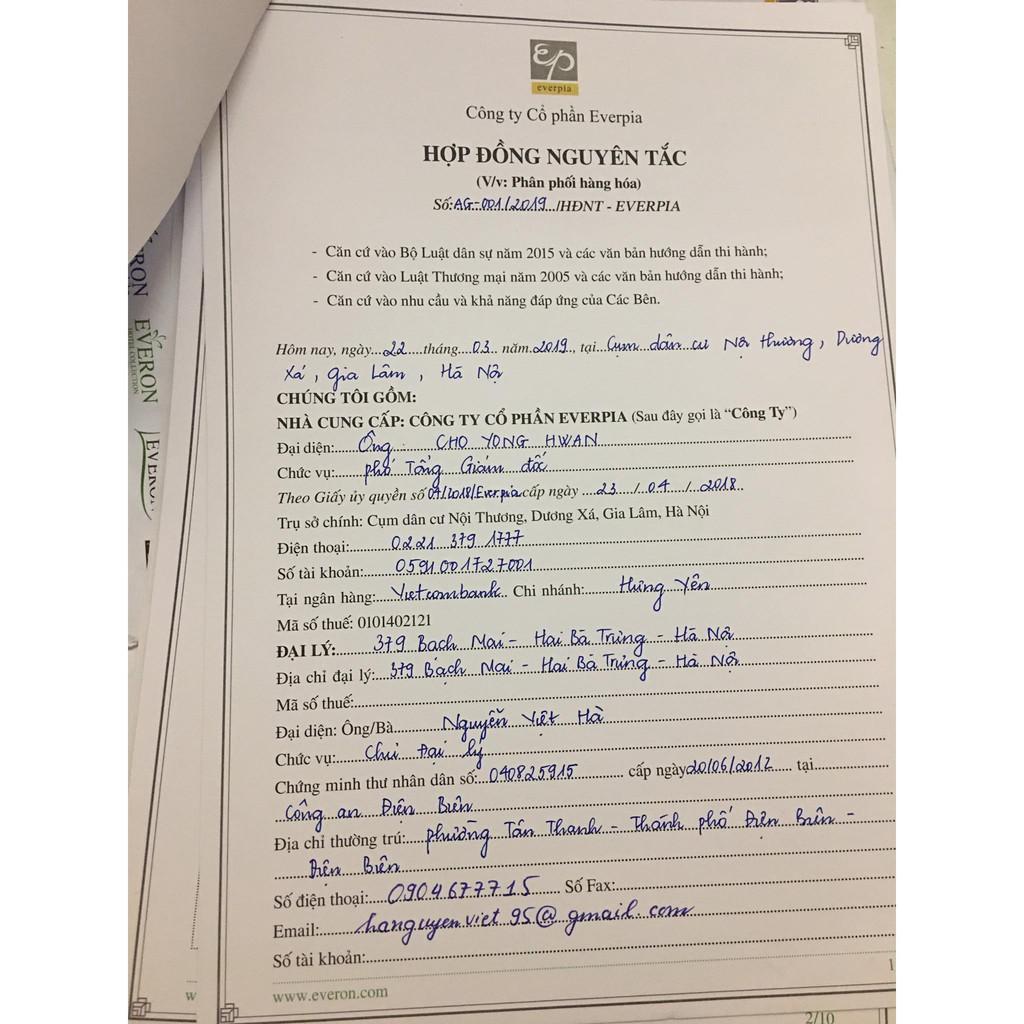 everpia
Công ty Cổ phần Everpia
HỢP ĐỒNG NGUYÊN TẮC
(V/v: Phân phối hàng hóa)
Số:AG-001/2019../HĐNT - EVERPIA
- Căn cứ vào Bộ Luật dân sự năm 2015 và các văn bản hướng dẫn thi hành;
- Căn cứ vào Luật Thương mại năm 2005 và các văn bản hướng dẫn thi hành;
- Căn cứ vào nhu cầu và khả năng đáp ứng của Các Bên.
Hôm nay, ngày...22....tháng...03.. năm.2019., tại...Cụm dân cư Nội Thương, Dương
Xá, Gia Lâm, Hà Nội
CHÚNG TÔI GỒM:
NHÀ CUNG CẤP: CÔNG TY CỔ PHẦN EVERPIA (Sau đây gọi là “Công Ty”)
Đại diện:....Ông CHO YONG HWAN
Chức vụ:.....phó Tổng Giám đốc
Theo Giấy ủy quyền số 04/2018/Everpia cấp ngày ...23.../..04.../..2018..
Trụ sở chính: Cụm dân cư Nội Thương, Dương Xá, Gia Lâm, Hà Nội
Điện thoại:.......0221 379 1777
Số tài khoản:.....0591001727001
Tại ngân hàng:...Vietcombank.. Chi nhánh:......Hưng Yên
Mã số thuế: 0101402121
ĐẠI LÝ:......379 Bạch Mai - Hai Bà Trưng - Hà Nội
Địa chỉ đại lý:..379 Bạch Mai - Hai Bà Trưng - Hà Nội
Mã số thuế:
Đại diện: Ông/Bà.......Nguyễn Việt Hà
Chức vụ:.....Chủ Đại lý
Chứng minh thư nhân dân số:..040825915............ cấp ngày20/06/2012..... tại
Công an Điện Biên
Địa chỉ thường trú:...phường Tân Thanh - Thành phố Điện Biên -
Điện Biên
Số điện thoại:...0904677715...... Số Fax:
Email:.......hanguyenviet95@gmail.com
Số tài khoản:
1
www.everon.com
2/10
w
RON
EVERON
HOTEL COLLECTION
EVERON